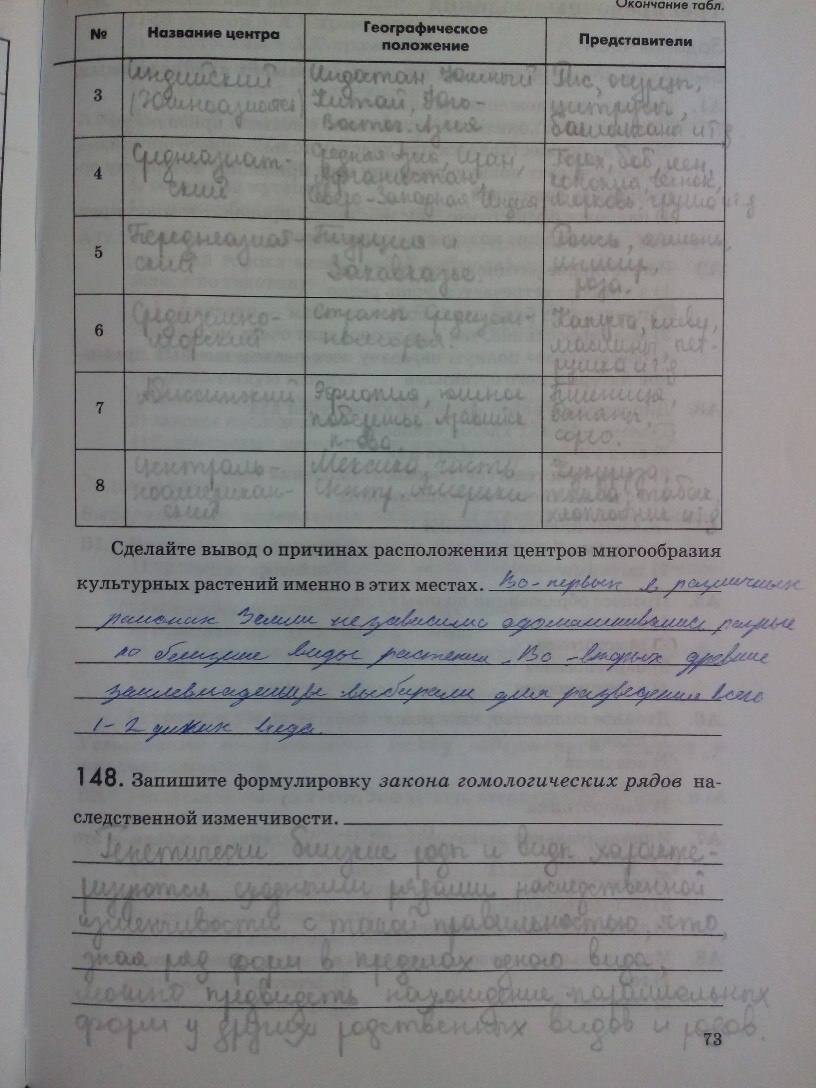 Окончание табл.
№ Название центра Географическое положение Представители
3 Индийский Индостан, Южный Рис, огурцы,
Китай, Юго- цитрусы,
Восточ. Азия баклажаны и т д
4 Среднеазиат- Средняя Азия, Иран, Горох, боб, лен,
ский Афганистан, конопля, чеснок,
Северо-Западная Индия морковь, груша и т д
5 Переднеазиат- Турция и Рожь, ячмень,
ский Закавказье. инжир,
роза.
6 Средиземно- Страны средизем- Капуста,
морский номорья. маслины, пет-
рушка и т д
7 Абиссинский Эфиопия, южное Пшеница,
побережье Аравийск бананы,
п-ова. сорго.
8 Централь- Мексика, часть Кукуруза,
ноамерикан- Центр. Америки табак,
ский хлопчатник и т д
Сделайте вывод о причинах расположения центров многообразия
культурных растений именно в этих местах. Во-первых в различных
районах Земли независимо одомашнивались разные
по виды растений. Во-вторых древние
земледельцы выбирали для разведения всего
1-2 диких вида.
148. Запишите формулировку закона гомологических рядов на-
следственной изменчивости.
Генетически близкие роды и виды характе-
ризуются сходными рядами наследственной
изменчивости с такой правильностью, что,
зная ряд форм в пределах одного вида,
можно предвидеть нахождение параллельных
форм у других родственных видов и родов.
73